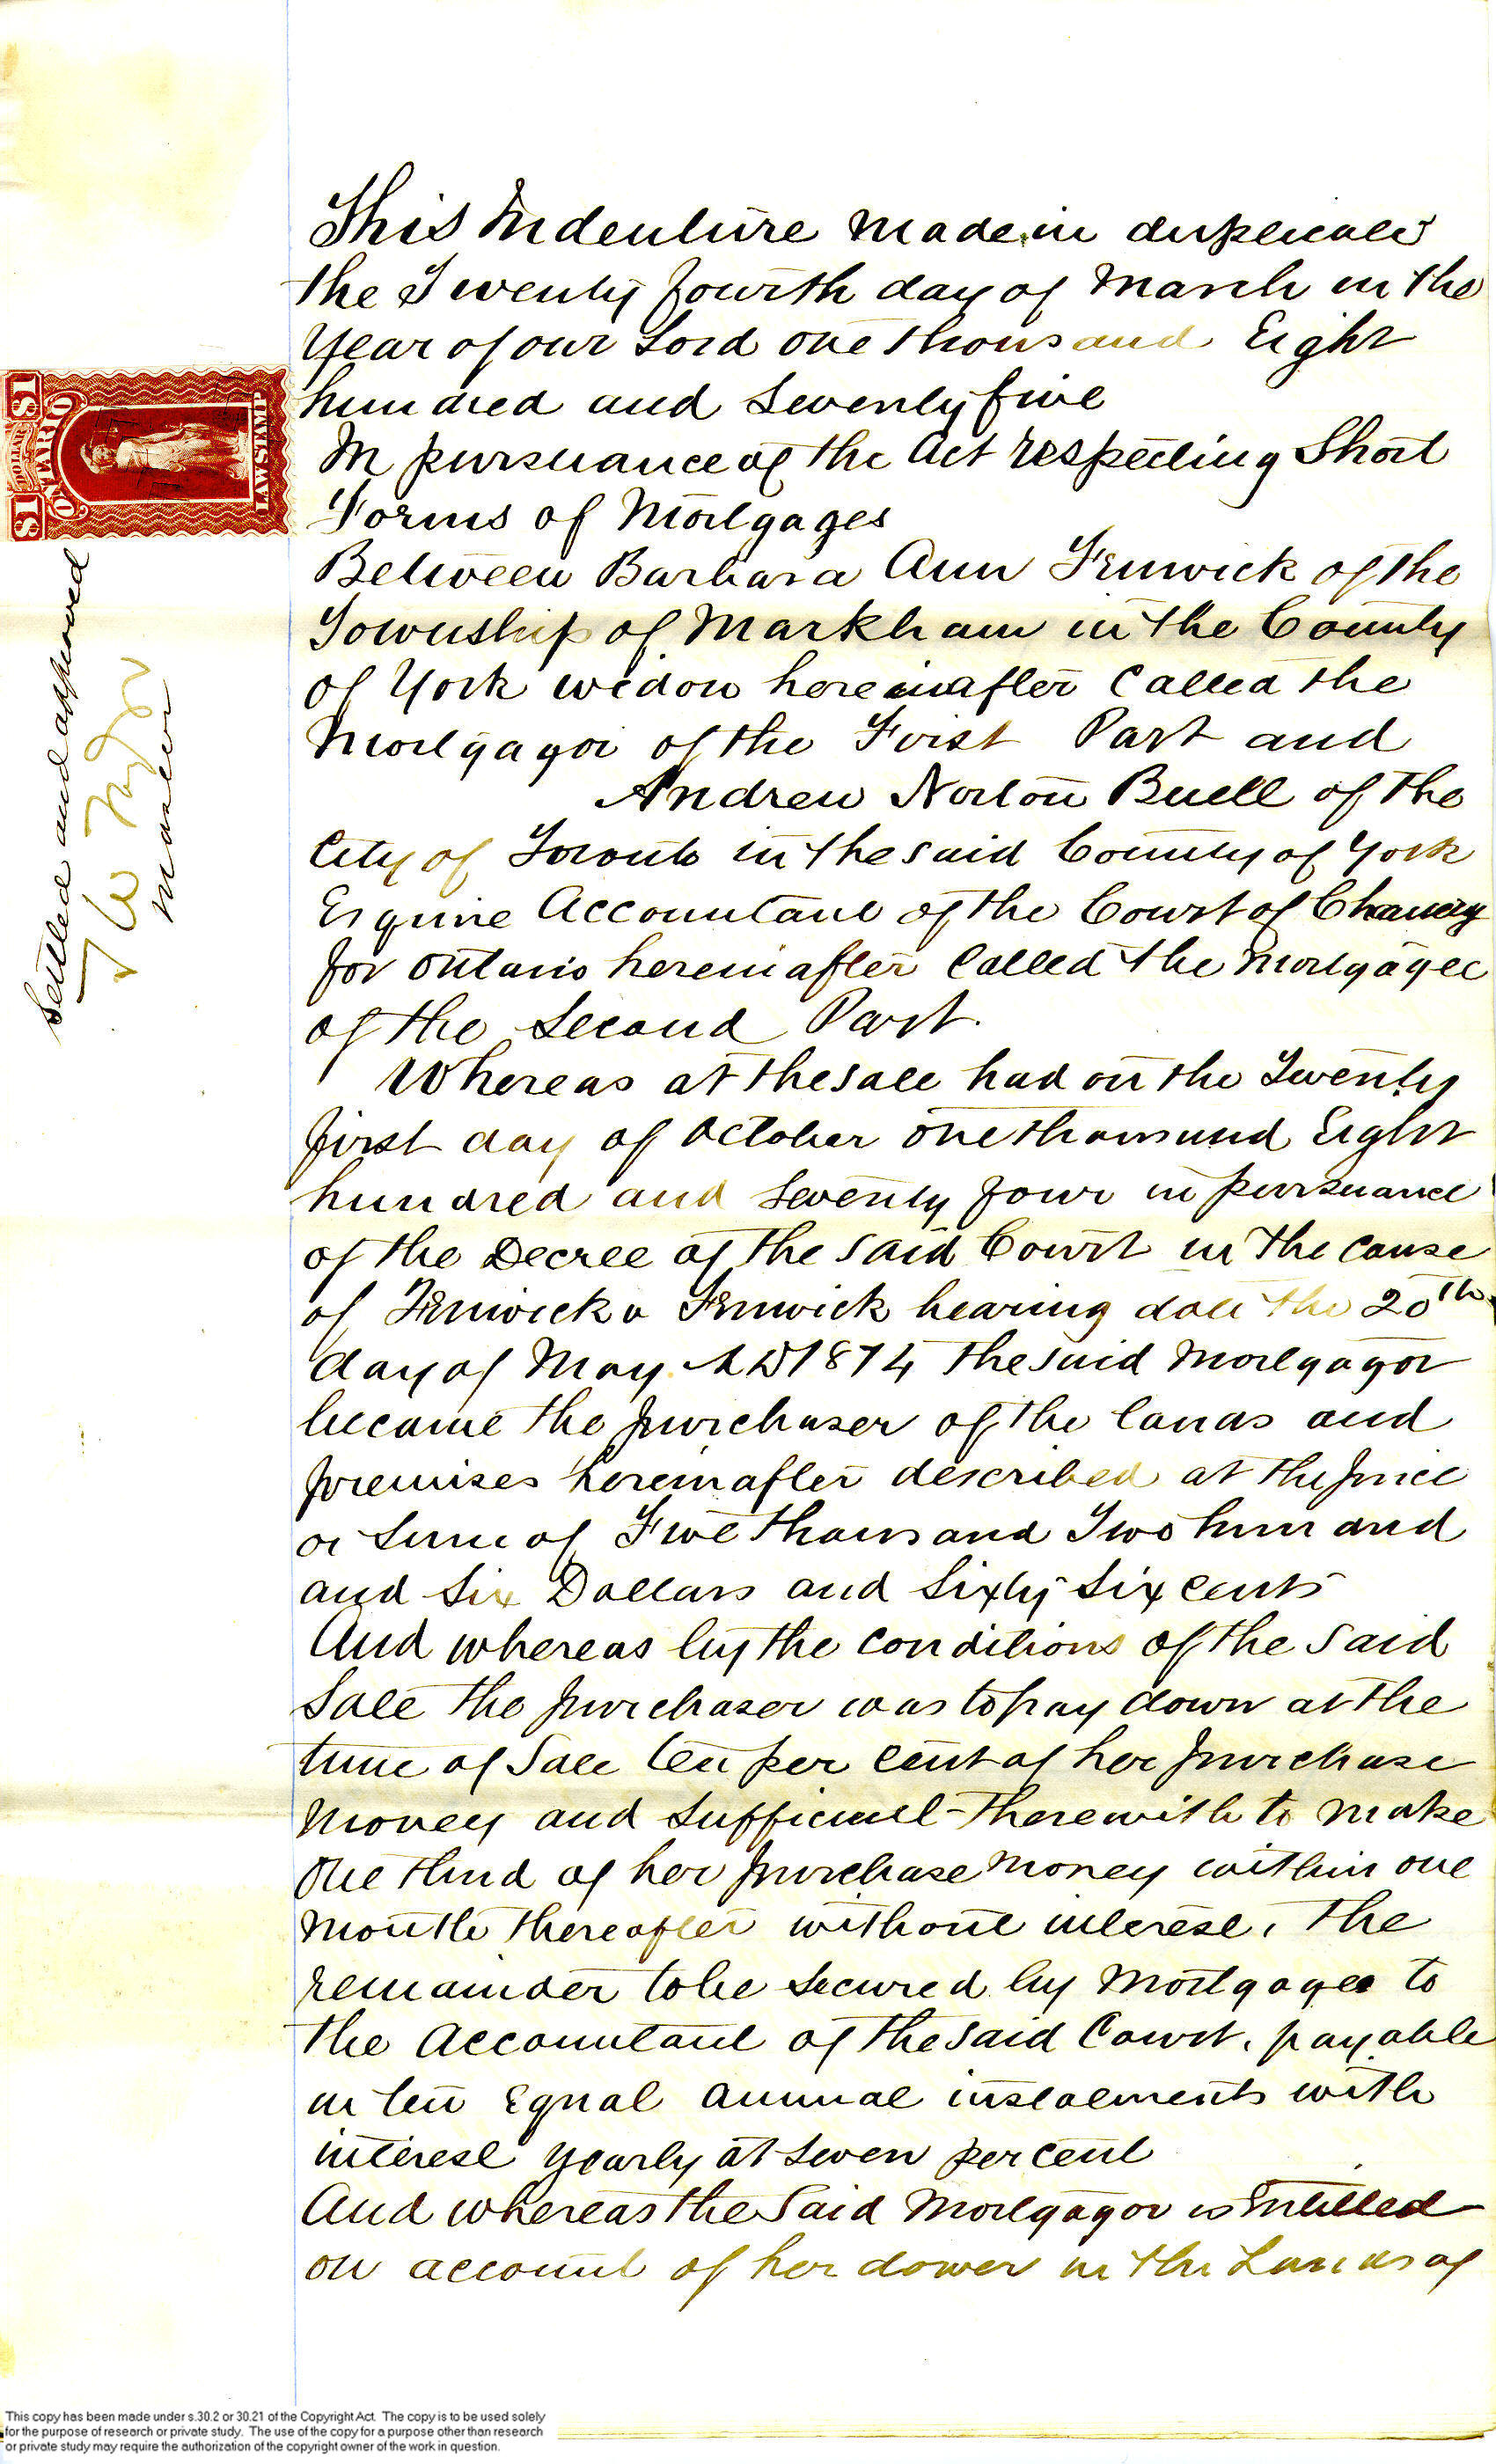 This Indenture made in duplicate
the Twenty fourth day of March in the
Year of our Lord one thousand Eight
hundred and Seventy five
In pursuance of the Act respecting Short
Forms of Mortgages
Between Barbara Ann Fenwick of the
Township of Markham in the County
of York widow hereinafter Called the
Mortgagor of the First Part and
Andrew Norton Buell of the
City of Toronto in the said County of York
Esquire Accountant of the Court of Chancery
for Ontario hereinafter Called the Mortgagee
of the Second Part.
Whereas at the sale had on the Twenty
first day of October one thousand Eight
hundred and Seventy four in pursuance
of the Decree of the said Court in the cause
of Fenwick v Fenwick bearing date the 20th
day of May AD 1874 the said Mortgagor
became the purchaser of the lands and
premises hereinafter described at the price
or Sum of Five thousand Two hundred
and Six Dollars and Sixty Six cents
And whereas by the conditions of the said
Sale the purchaser was to pay down at the
time of Sale ten per cent of her purchase
money and sufficient therewith to make
One third of her purchase money within one
month thereafter without interest, the
remainder to be secured by Mortgage to
the Accountant of the said Court, payable
in ten Equal annual instalments with
interest yearly at Seven per cent
And whereas the Said Mortgagor is Entitled
on account of her dower in the Lands of
$1 ONTARIO $1
DOLLAR
LAW STAMP
Settled and approved
Master
This copy has been made under s.30.2 or 30.21 of the Copyright Act. The copy is to be used solely
for the purpose of research or private study. The use of the copy for a purpose other than research
or private study may require the authorization of the copyright owner of the work in question.